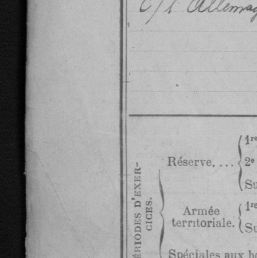 c/ l'Allemag
PÉRIODES D'EXER-
CICES.
Réserve....
1re
2e
Su
Armée
territoriale.
1re
Su
Spéciales aux ho